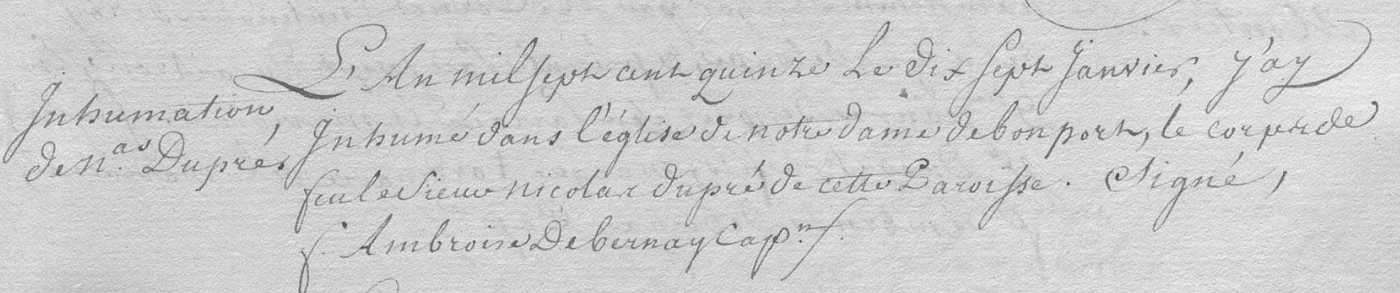 Inhumation,
de n.as Duprés
L'An mil sept cent quinze Le dix sept Janvier, j'ay
Inhumé dans l'église de notre dame de bon port, le corps de
feu le Sieur nicolas dupré de cette Paroisse. Signé,
f. Ambroise Debernay Cap.n f.